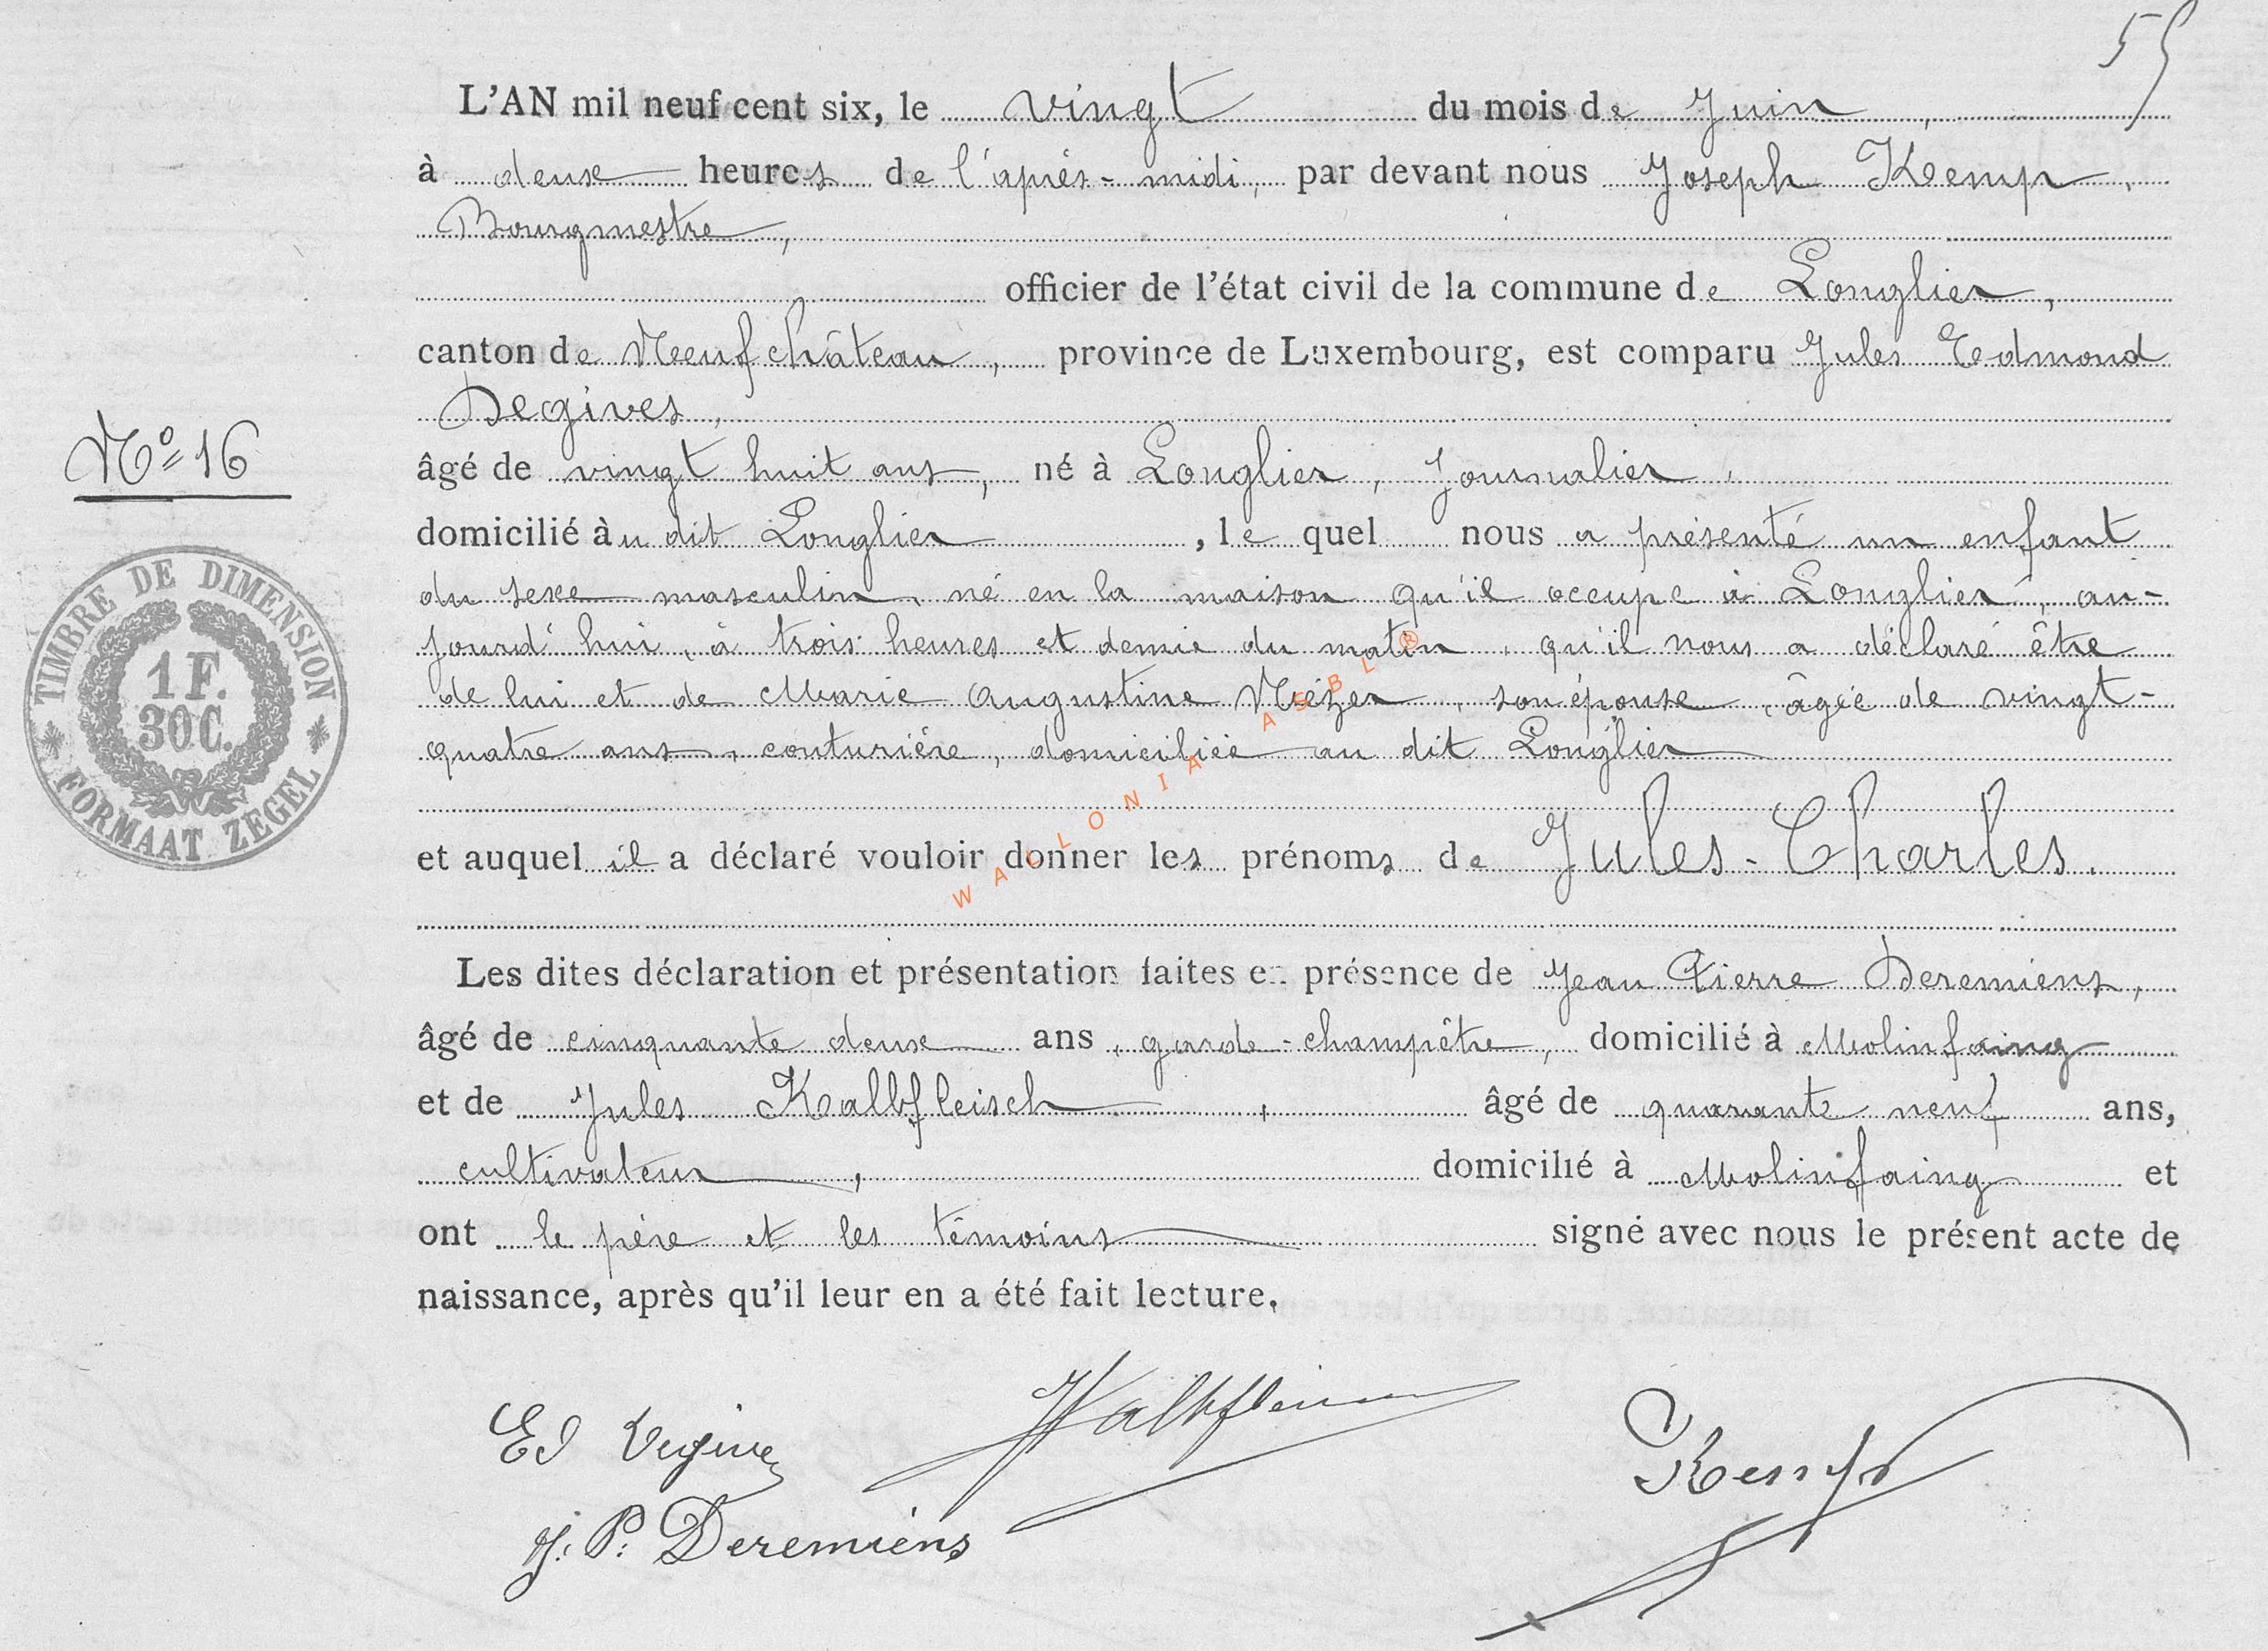 55
L'AN mil neuf cent six, le vingt du mois de Juin,
à deux heures de l'après-midi, par devant nous Joseph Kemp,
Bourgmestre,
officier de l'état civil de la commune de Longlier,
canton de Neufchâteau, province de Luxembourg, est comparu Jules Edmond
Degives,
N° 16
âgé de vingt huit ans, né à Longlier, journalier,
domicilié au dit Longlier, le quel nous a présenté un enfant
du sexe masculin, né en la maison qu'il occupe à Longlier, au-
jourd'hui, à trois heures et demie du matin, qu'il nous a déclaré être
de lui et de Marie Augustine Nézer, son épouse, âgée de vingt-
quatre ans, couturière, domiciliée au dit Longlier
TIMBRE DE DIMENSION
1 F.
30 C.
FORMAAT ZEGEL
et auquel il a déclaré vouloir donner les prénoms de Jules-Charles.
WALLONIA ASBL ®
Les dites déclaration et présentation faites en présence de Jean Pierre Deremiens,
âgé de cinquante deux ans, garde-champêtre, domicilié à Molinfaing
et de Jules Kalbfleisch, âgé de quarante neuf ans,
cultivateur, domicilié à Molinfaing et
ont le père et les témoins signé avec nous le présent acte de
naissance, après qu'il leur en a été fait lecture.
Ed Degives
Kalbfleisch
Kemp
J. P. Deremiens